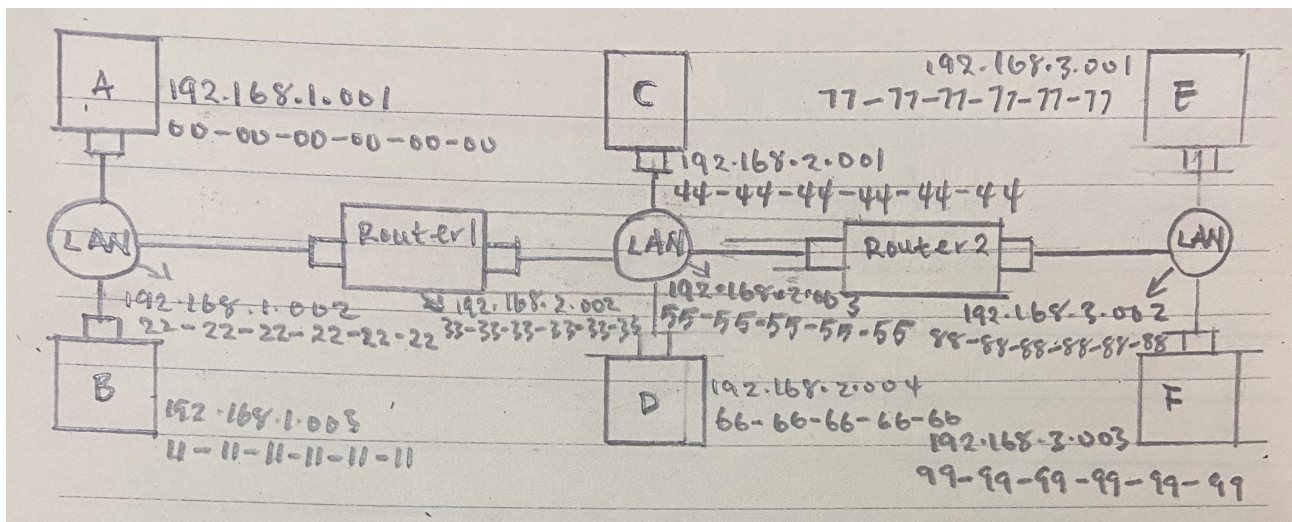 A
192.168.1.001
00-00-00-00-00-00
C
192.168.2.001
44-44-44-44-44-44
192.168.3.001
77-77-77-77-77-77
E
LAN
Router1
LAN
Router2
LAN
192.168.1.002
22-22-22-22-22-22
192.168.2.002
33-33-33-33-33-33
192.168.2.003
55-55-55-55-55
192.168.3.002
88-88-88-88-88-88
B
192.168.1.003
11-11-11-11-11-11
D
192.168.2.004
66-66-66-66-66
F
192.168.3.003
99-99-99-99-99-99